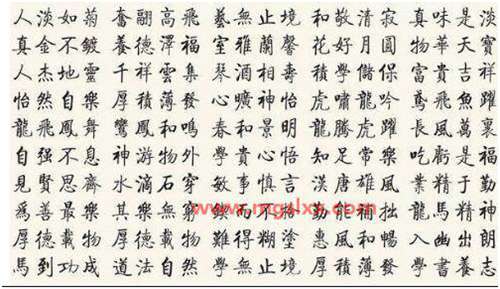 人淡如菊 奮翮高飛 藝無止境 和敬清寂 真味是淡
真金不鍍 養德澤福 室雅蘭馨 花好月圓 物華天寶
人杰地靈 千祥雲集 琴酒相壽 積學儲保 富貴吉祥
怡然自樂 厚積薄發 心曠神怡 虎嘯龍吟 鳶飛魚躍
龍飛鳳舞 鸞鳳和鳴 春和景明 龍騰虎躍 長風萬裏
自强不息 神游物外 學貴心悟 知足常樂 吃虧是福
見賢思齊 水滴石穿 敏事慎言 漢唐雄風 業精于勤
爲善最樂 其樂無窮 拙 龍馬精神
厚德載物 厚德載物 難得糊塗 惠風和暢 入幽出朗
馬到功成 道法自然 學無止境 厚積薄發 學書養志